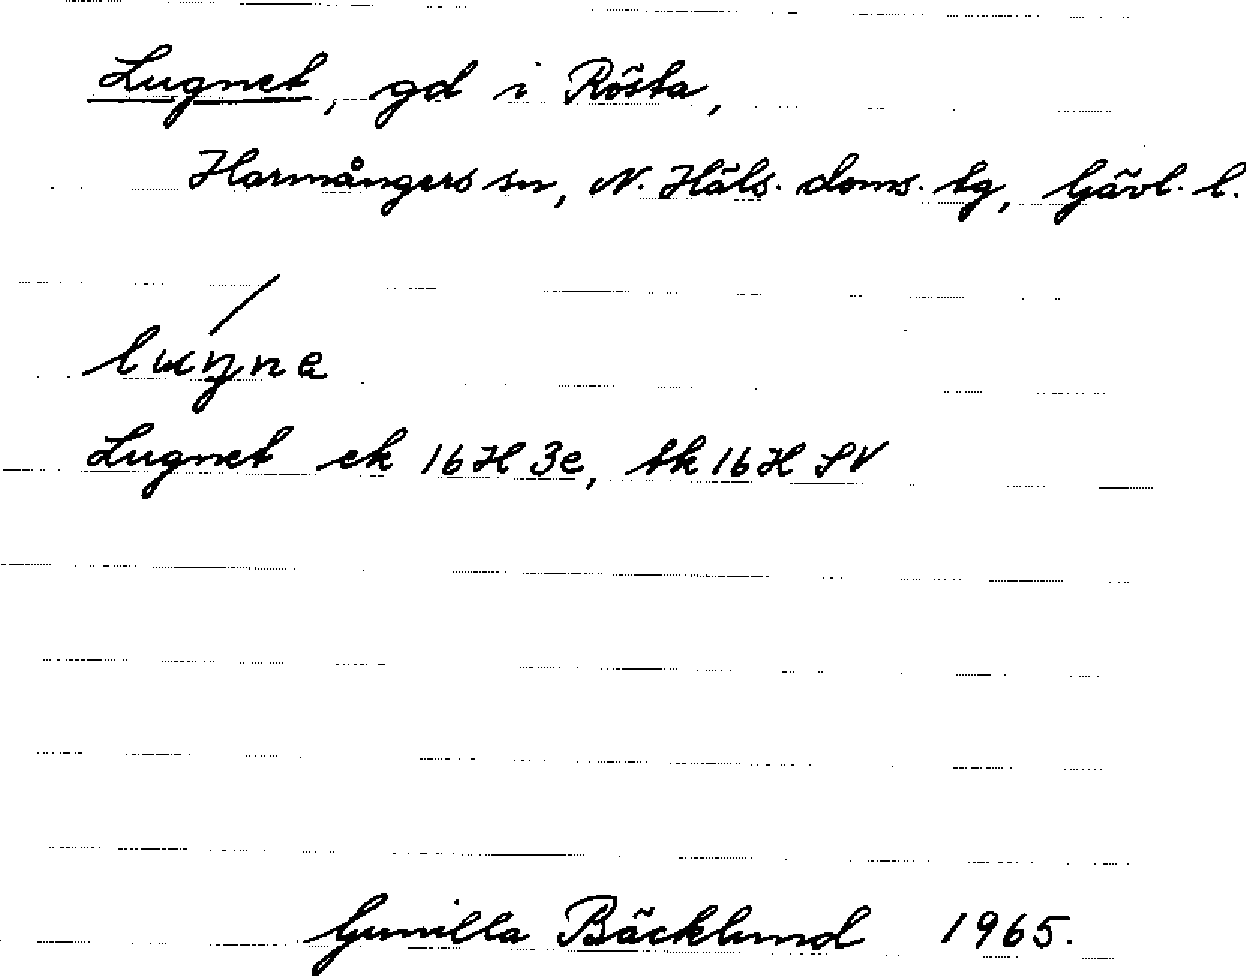 Lugnet, gd i Rösta,
Harmångers sn, N. Häls. doms. tg, Gävl. l.
Lugnet ek 16H 3e, tk 16H SV
Gunilla Bäcklund 1965.